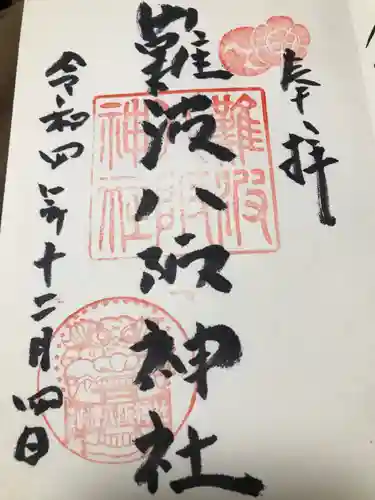 奉拝
難波八阪神社
令和四年十二月四日
難波
八阪
神社